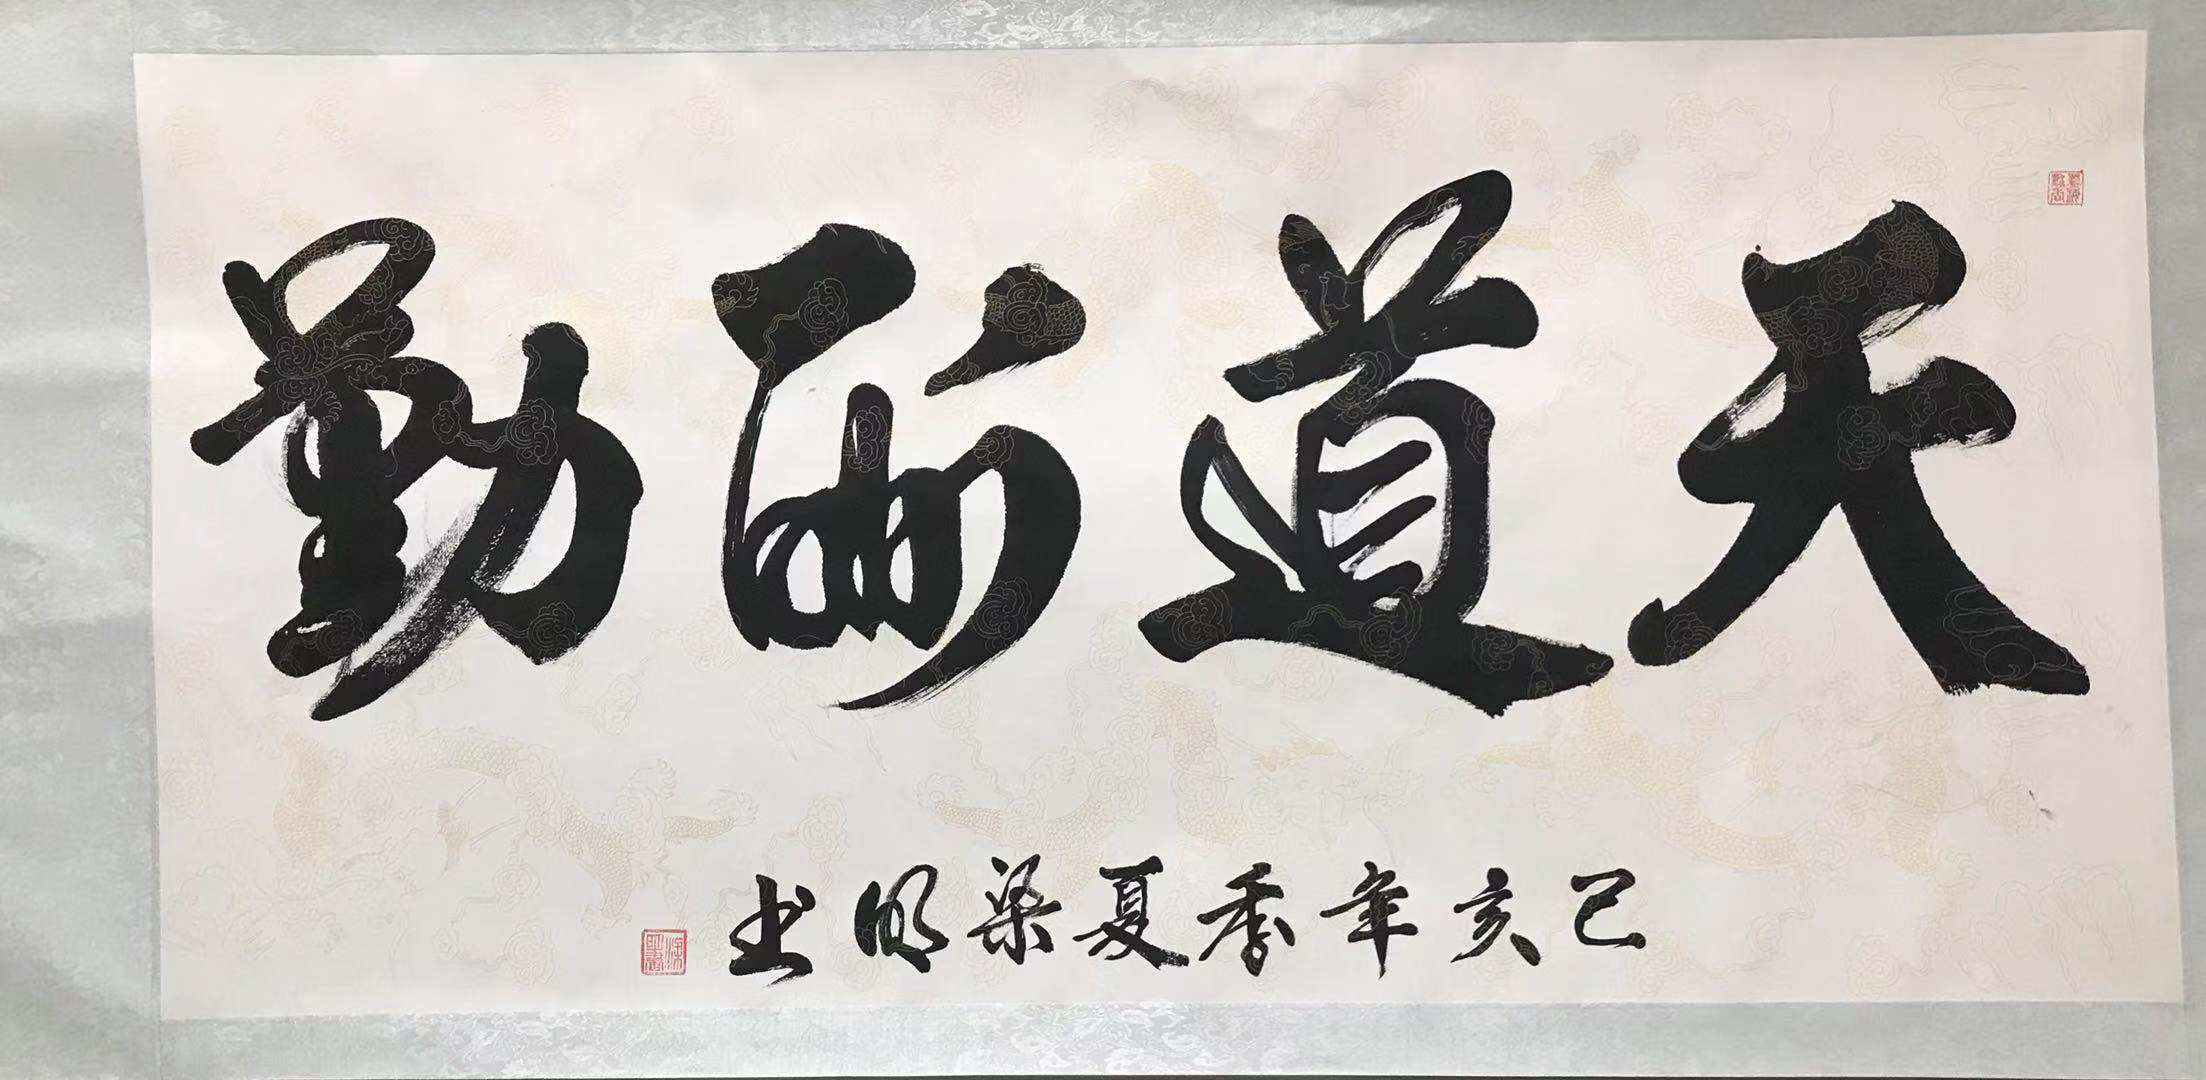 天道酬勤
己亥年季夏梁明书